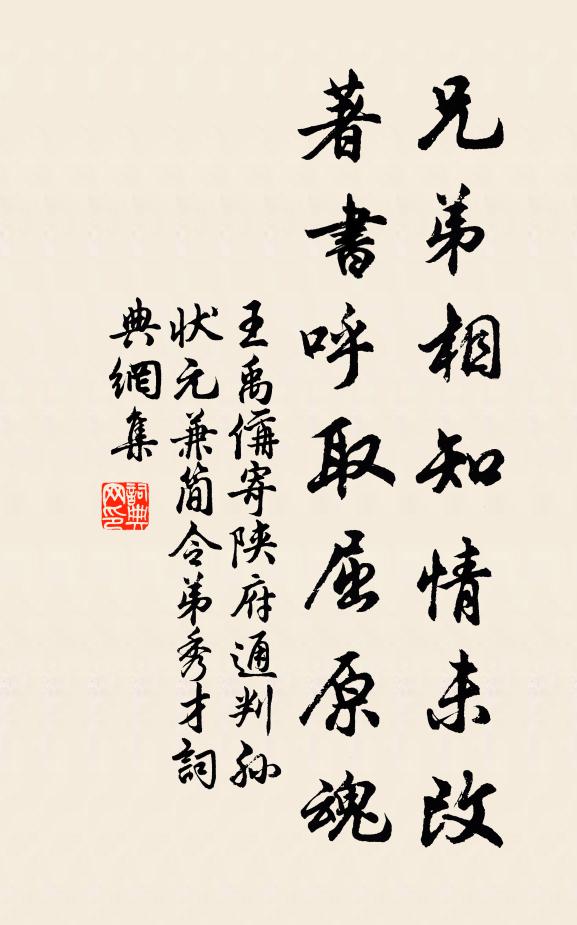 兄弟相知情未改
著書呼取屈原魂
王禹偁寄陝府通判孫
狀元兼簡令弟秀才詞
典網集
詞典網印